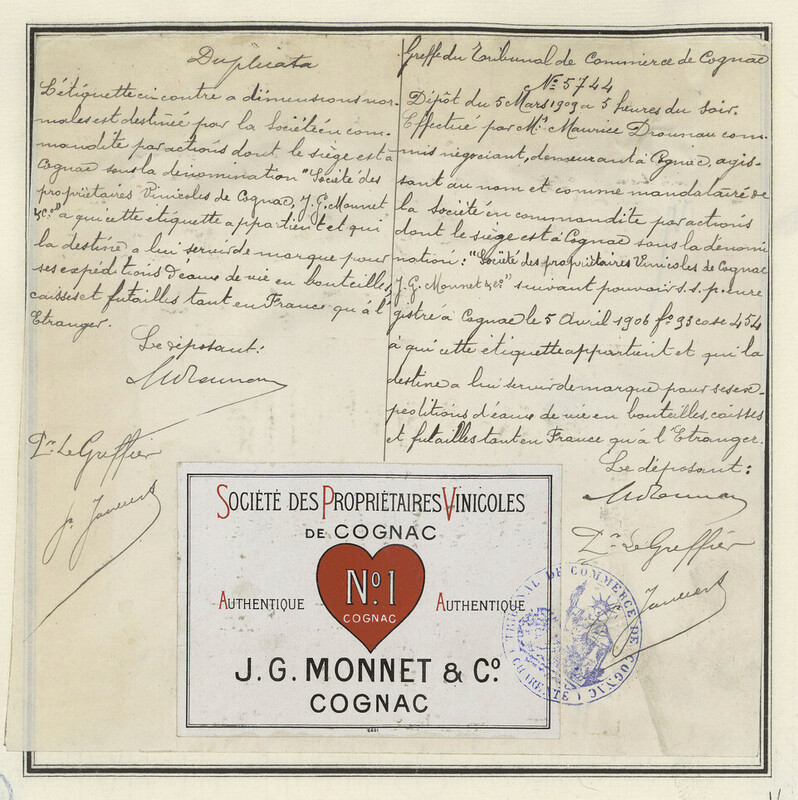 Duplicata
L'étiquette ci contre a dimensions nor-
males est destinée par la Société en com-
mandite par actions dont le siège est à
Cognac sous la dénomination "Société des
propriétaires Vinicoles de Cognac, J. G. Monnet
& Cº." à qui cette etiquette appartient et qui
la destine a lui servir de marque pour
ses expéditions d'eaux de vie en bouteilles,
caisses et futailles tant en France qu'à l'
Etranger.
Le déposant:
Pr. Le Greffier
Greffe du Tribunal de Commerce de Cognac
Nº 5744
Dépôt du 5 Mars 1909 a 5 heures du soir.
Effectué par Mr. Maurice Drounau com-
mis négociant, demeurant à Cognac, agis-
sant au nom et comme mandataire de
la Société en commandite par actions
dont le siège est à Cognac sous la denomi
nation: "Société des propriétaires Vinicoles de Cognac
J. G. Monnet & Cº." suivant pouvoir s.s.p. enre
gistré à Cognac le 5 Avril 1906 fº 93 case 454
à qui cette étiquette appartient et qui la
destine a lui servir de marque pour ses ex-
péditions d'eaux de vie en bouteilles, caisses
et futailles tant en France qu'à l'Etranger.
Le déposant:
Pr. Le Greffier
SOCIÉTÉ DES PROPRIÉTAIRES VINICOLES
DE COGNAC
Nº1
COGNAC
AUTHENTIQUE AUTHENTIQUE
J. G. MONNET & Cº
COGNAC
TRIBUNAL DE COMMERCE DE COGNAC
(CHARENTE)